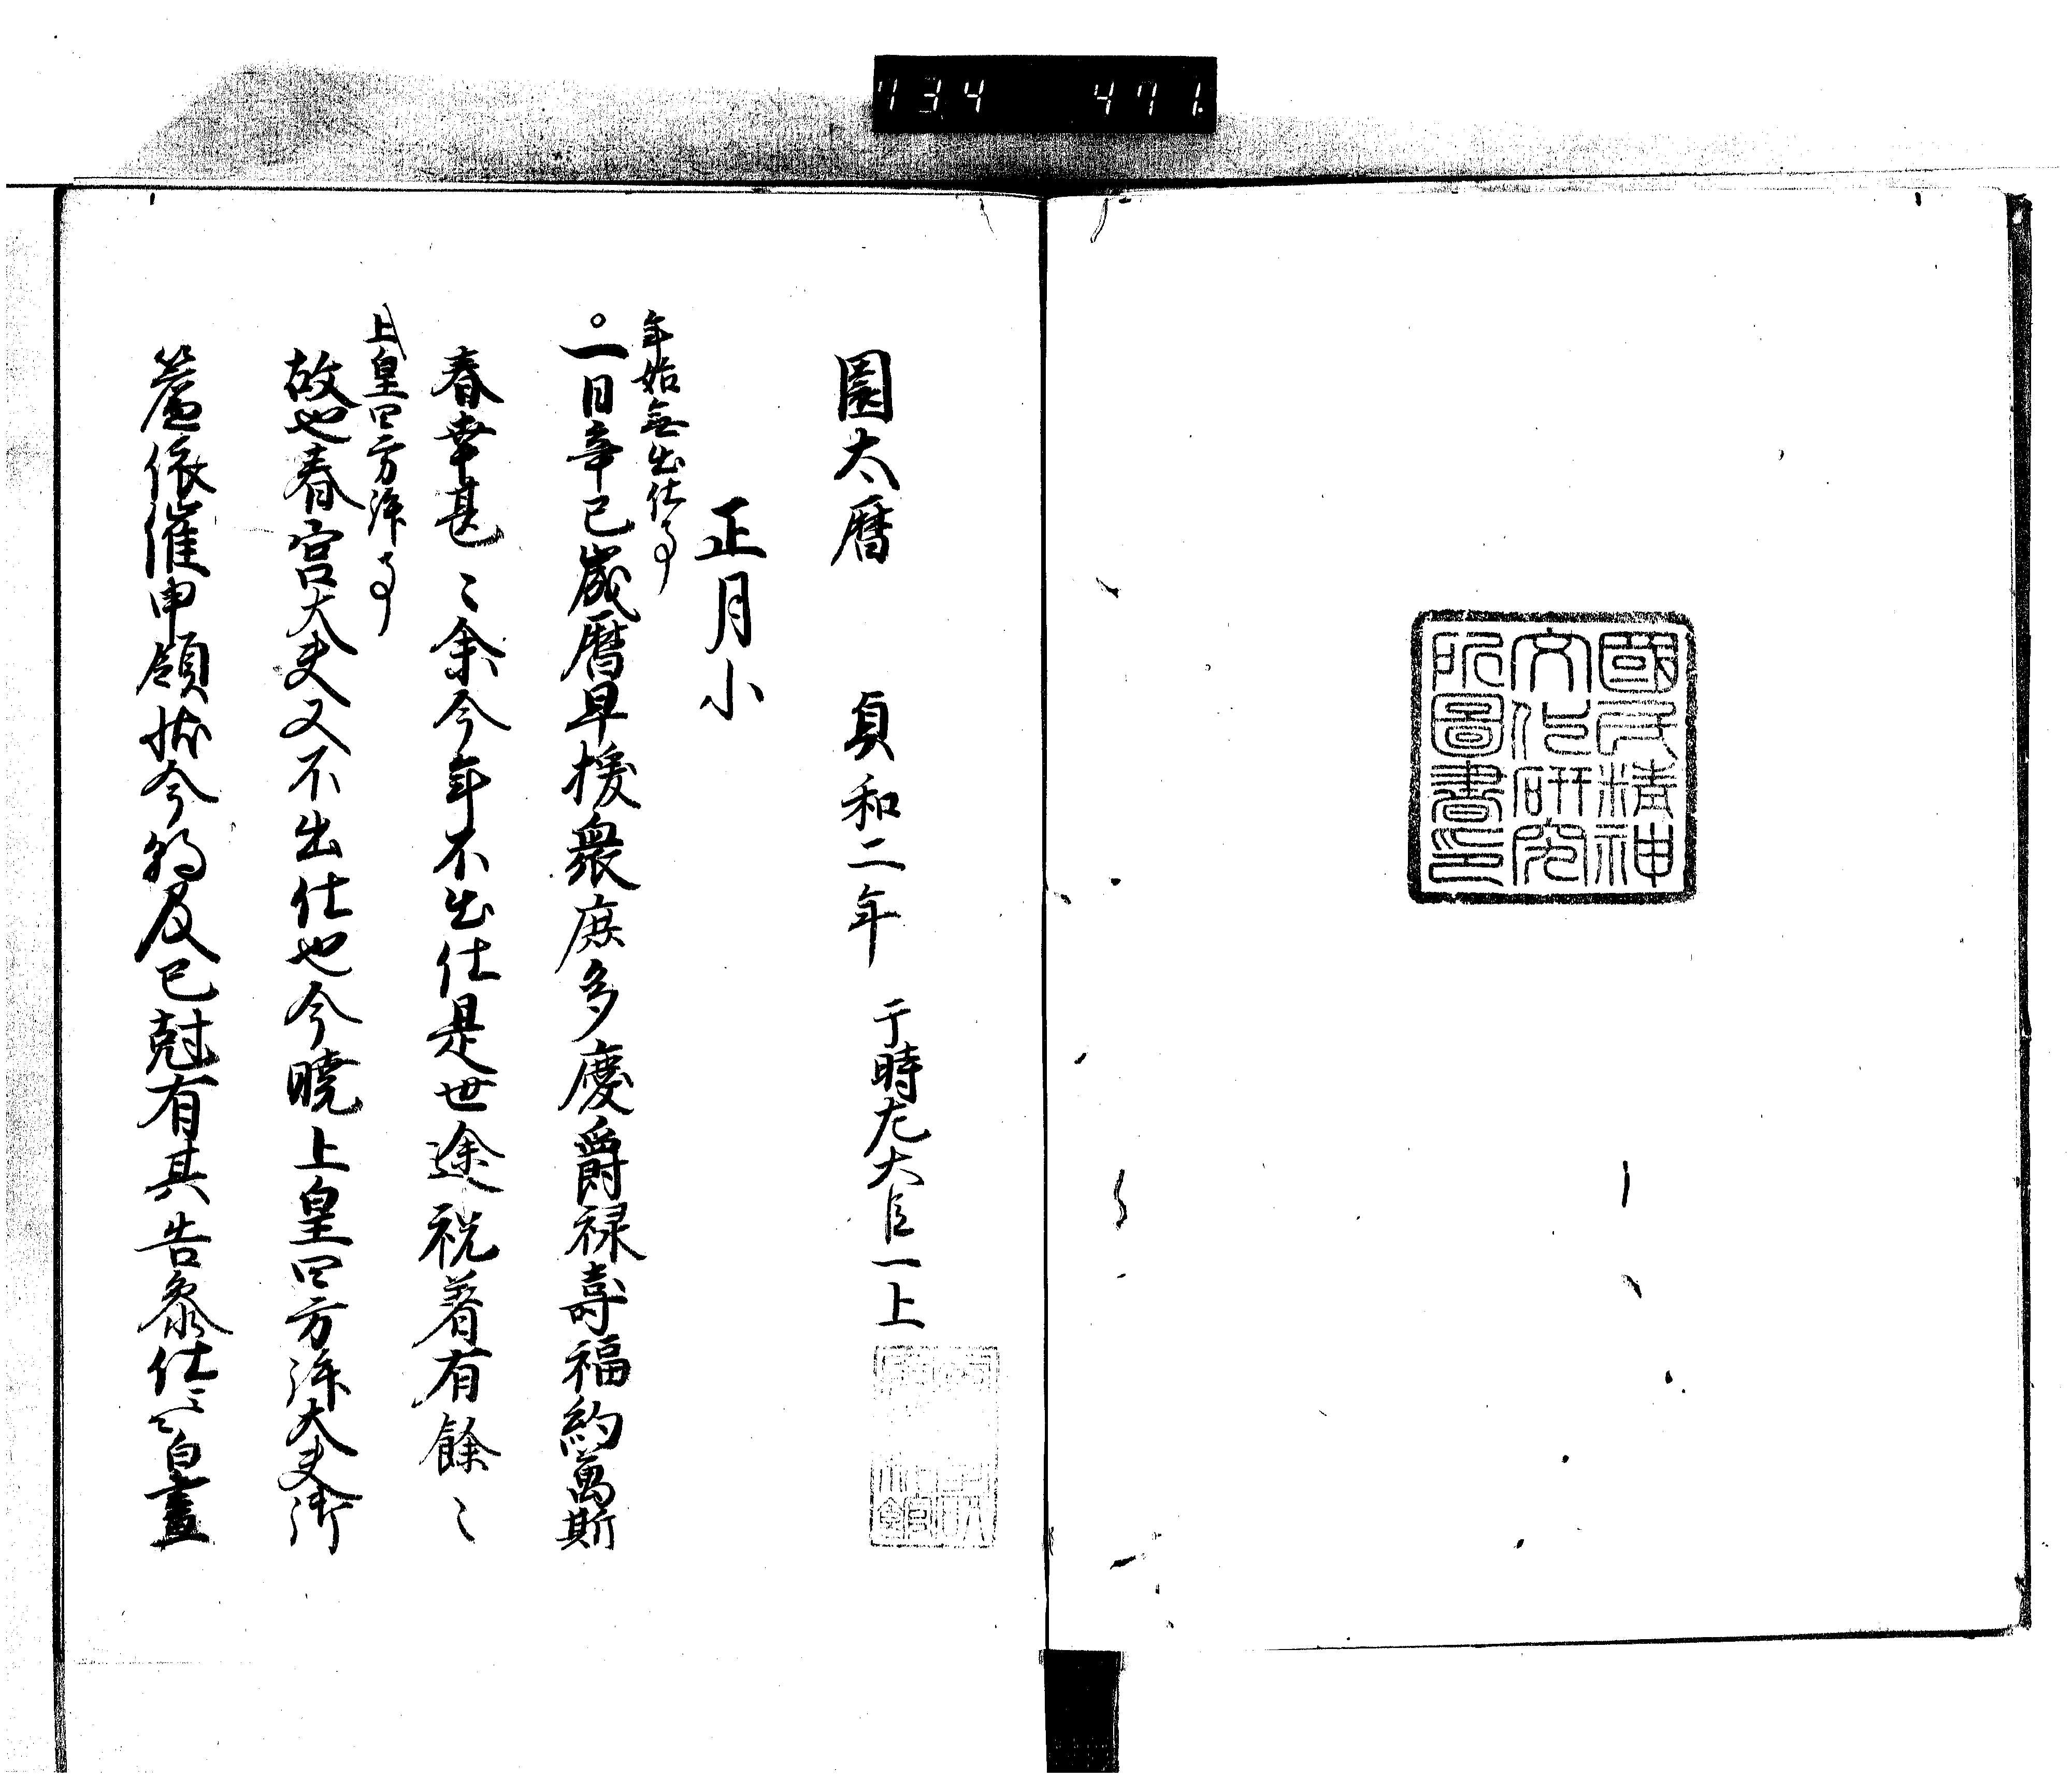 734 471
國民精神
文化研究
所圖書印
園太暦 貞和二年 于時左大臣一上
正月小
年始無出仕事
一日辛巳歳暦早揆衆庶多慶爵禄寿福約萬斯
春幸甚〻余今年不出仕是世途祝着有餘〻
上皇四方拝事
故也春宮大夫又不出仕也今暁上皇四方拝大夫御
簾依催申領状今朝及已尅有其告参仕云〻白晝